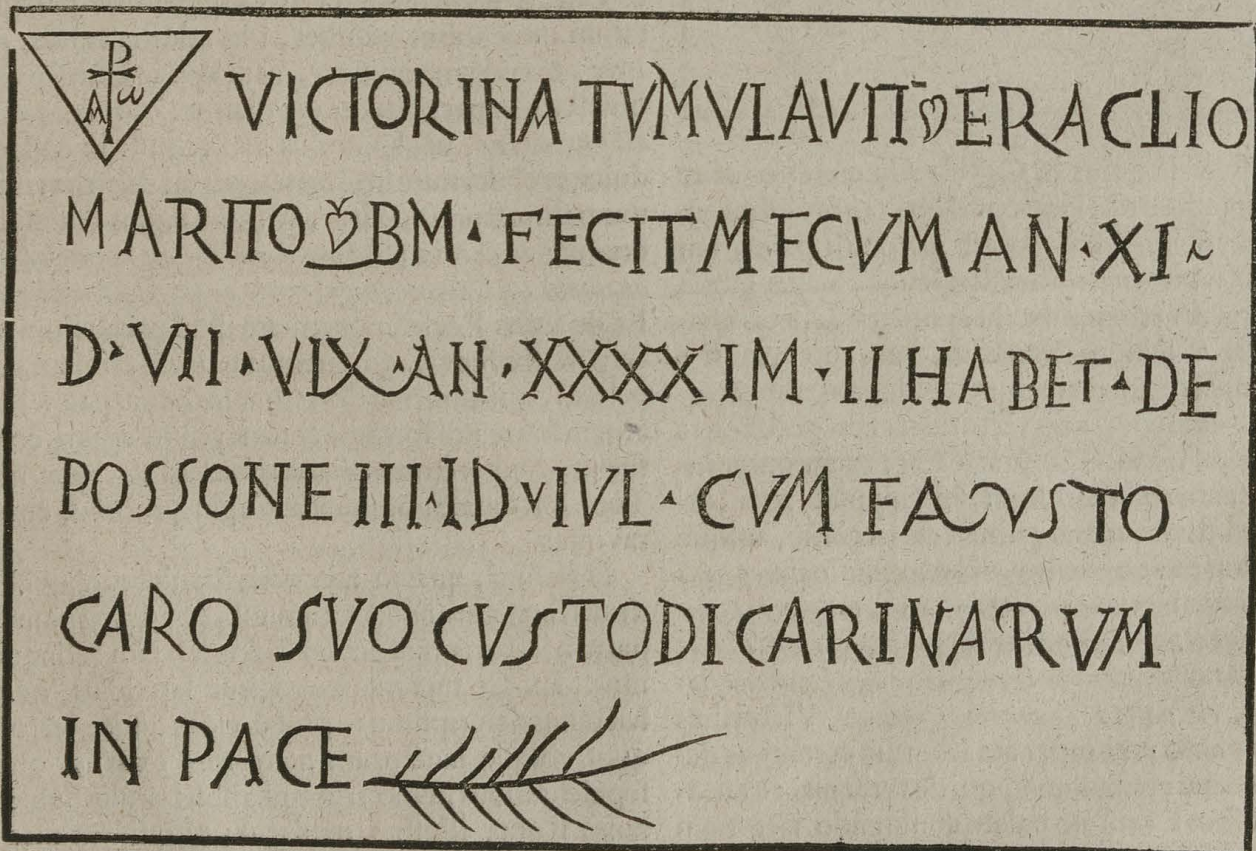 ⳩ A ω VICTORINA · TVMVLAVIT ❦ ERACLIO
MARITO ❦ BM · FECIT MECVM AN · XI ~
D · VII · VIX · AN · XXXXI M · II HABET · DE
POSSONE III · ID · IVL · CVM FAVSTO
CARO SVO CVSTODI CARINARVM
IN PACE